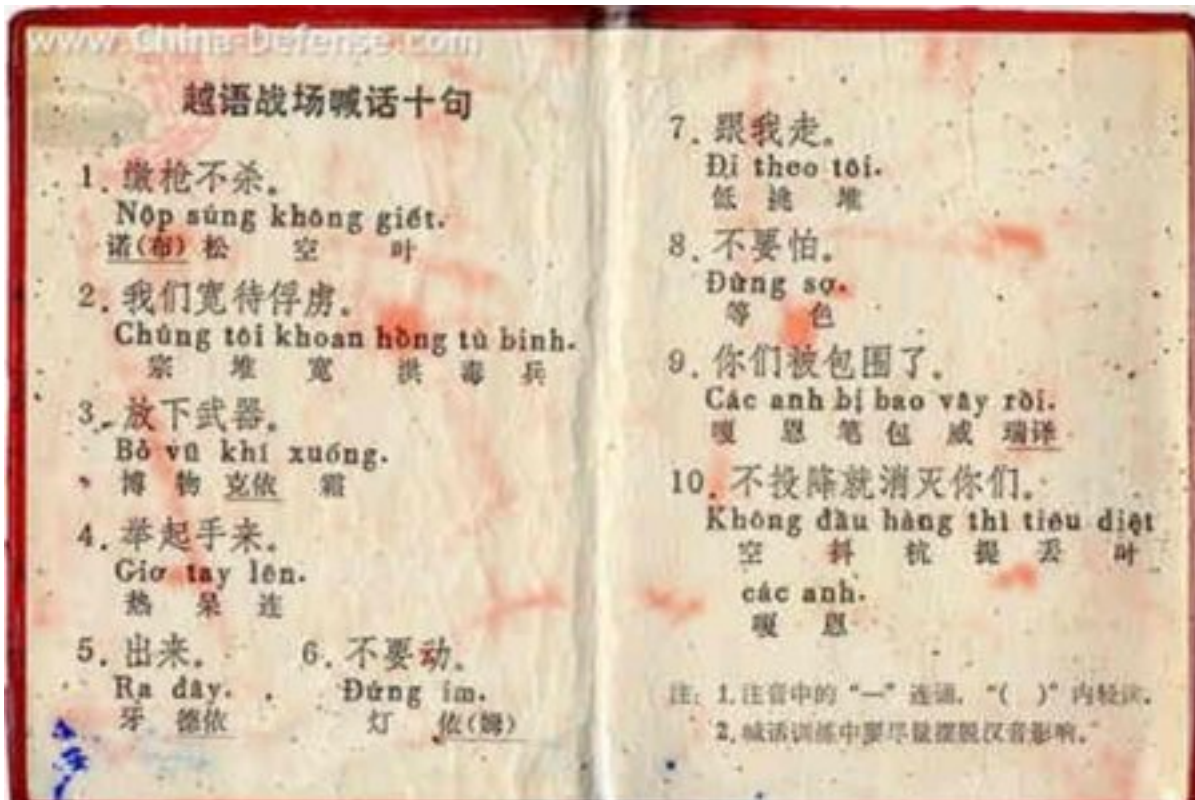 www.China-Defense.com
越语战场喊话十句
1. 缴枪不杀。
Nộp súng không giết.
诺(布) 松 空 叶
2. 我们宽待俘虏。
Chúng tôi khoan hồng tù binh.
宗 堆 宽 洪 毒 兵
3. 放下武器。
Bỏ vũ khí xuống.
博 物 克依 霜
4. 举起手来。
Giơ tay lên.
热 呆 连
5. 出来。 6. 不要动。
Ra đây. Đứng im.
牙 德依 灯 依(姆)
7. 跟我走。
Đi theo tôi.
低 挑 堆
8. 不要怕。
Đừng sợ.
等 色
9. 你们被包围了。
Các anh bị bao vây rồi.
嘎 恩 笔 包 威 瑞译
10. 不投降就消灭你们。
Không đầu hàng thì tiêu diệt
空 斜 杭 提 丢 叶
các anh.
嘎 恩
注: 1. 注音中的“—”连诵, “( )”内轻读.
2. 喊话训练中要尽量摆脱汉音影响。